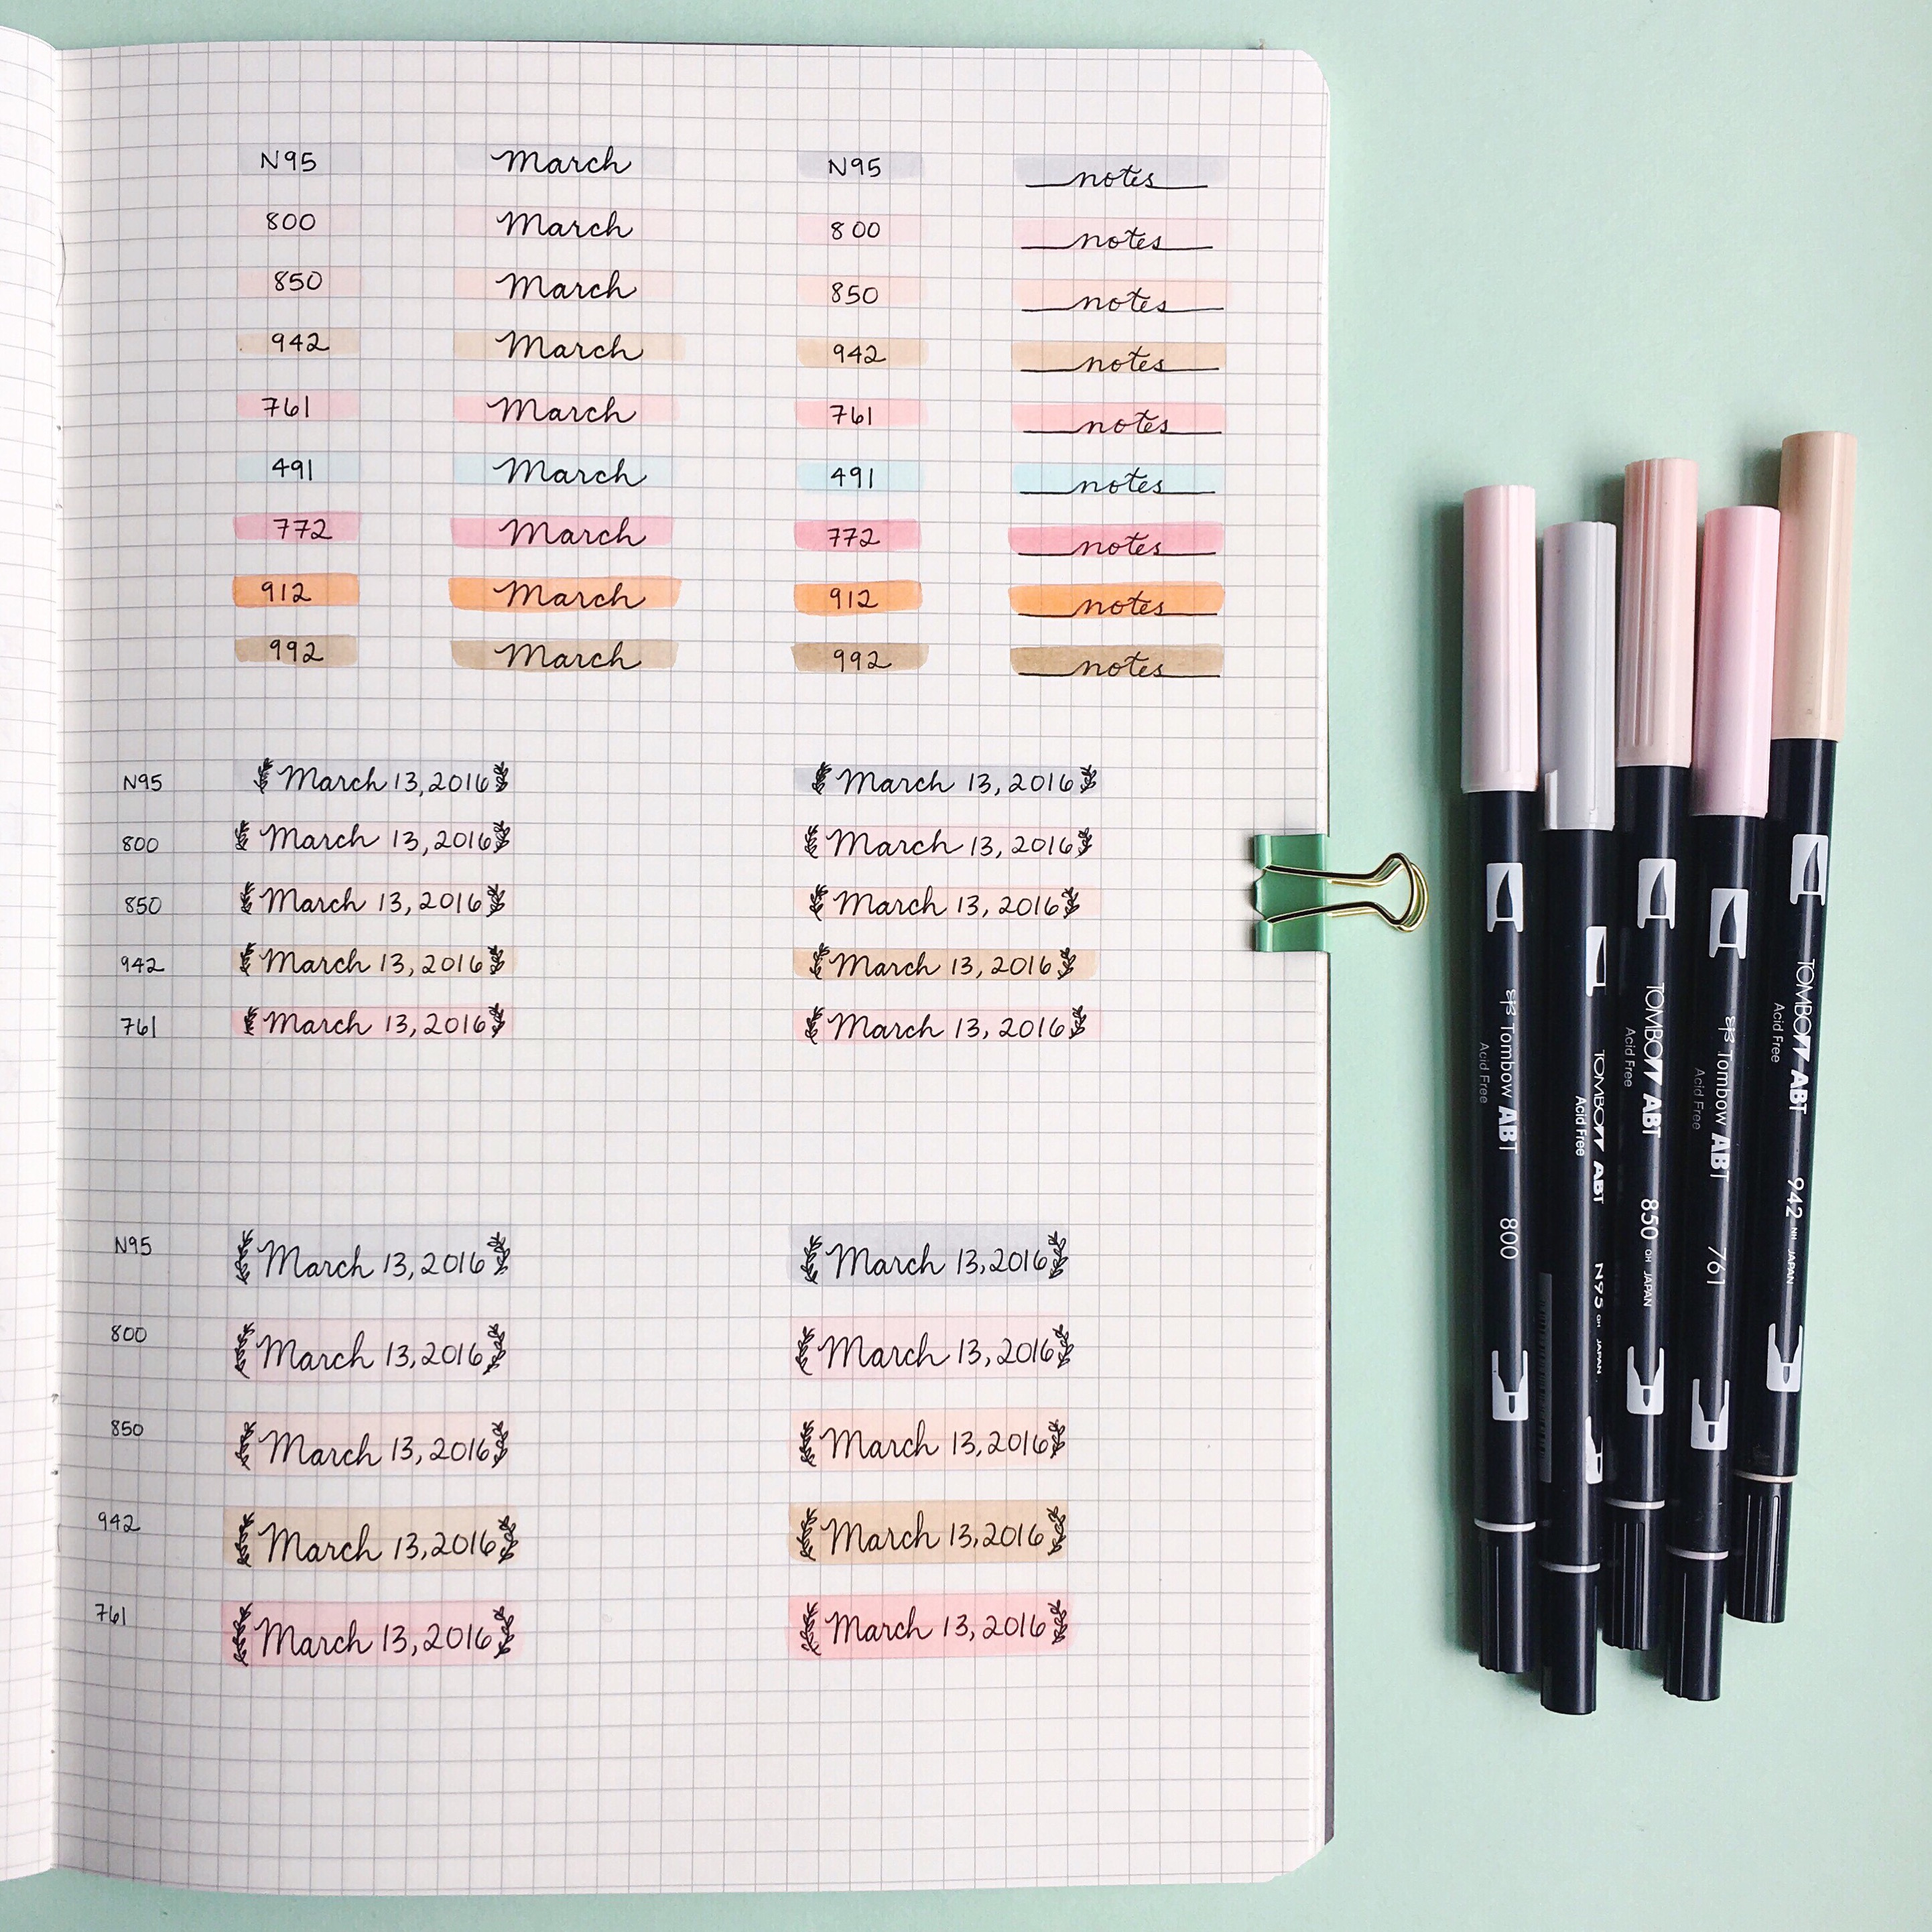 N95 March N95 notes
800 March 800 notes
850 March 850 notes
942 March 942 notes
761 March 761 notes
491 March 491 notes
772 March 772 notes
912 March 912 notes
992 March 992 notes
N95 March 13, 2016 March 13, 2016
800 March 13, 2016 March 13, 2016
850 March 13, 2016 March 13, 2016
942 March 13, 2016 March 13, 2016
761 March 13, 2016 March 13, 2016
N95 March 13, 2016 March 13, 2016
800 March 13, 2016 March 13, 2016
850 March 13, 2016 March 13, 2016
942 March 13, 2016 March 13, 2016
761 March 13, 2016 March 13, 2016
Tombow ABT 800
Acid Free
TOMBOW ABT N95 JAPAN
Acid Free
TOMBOW ABT 850 QH JAPAN
Acid Free
Tombow ABT 761
Acid Free
TOMBOW ABT 942 NH JAPAN
Acid Free